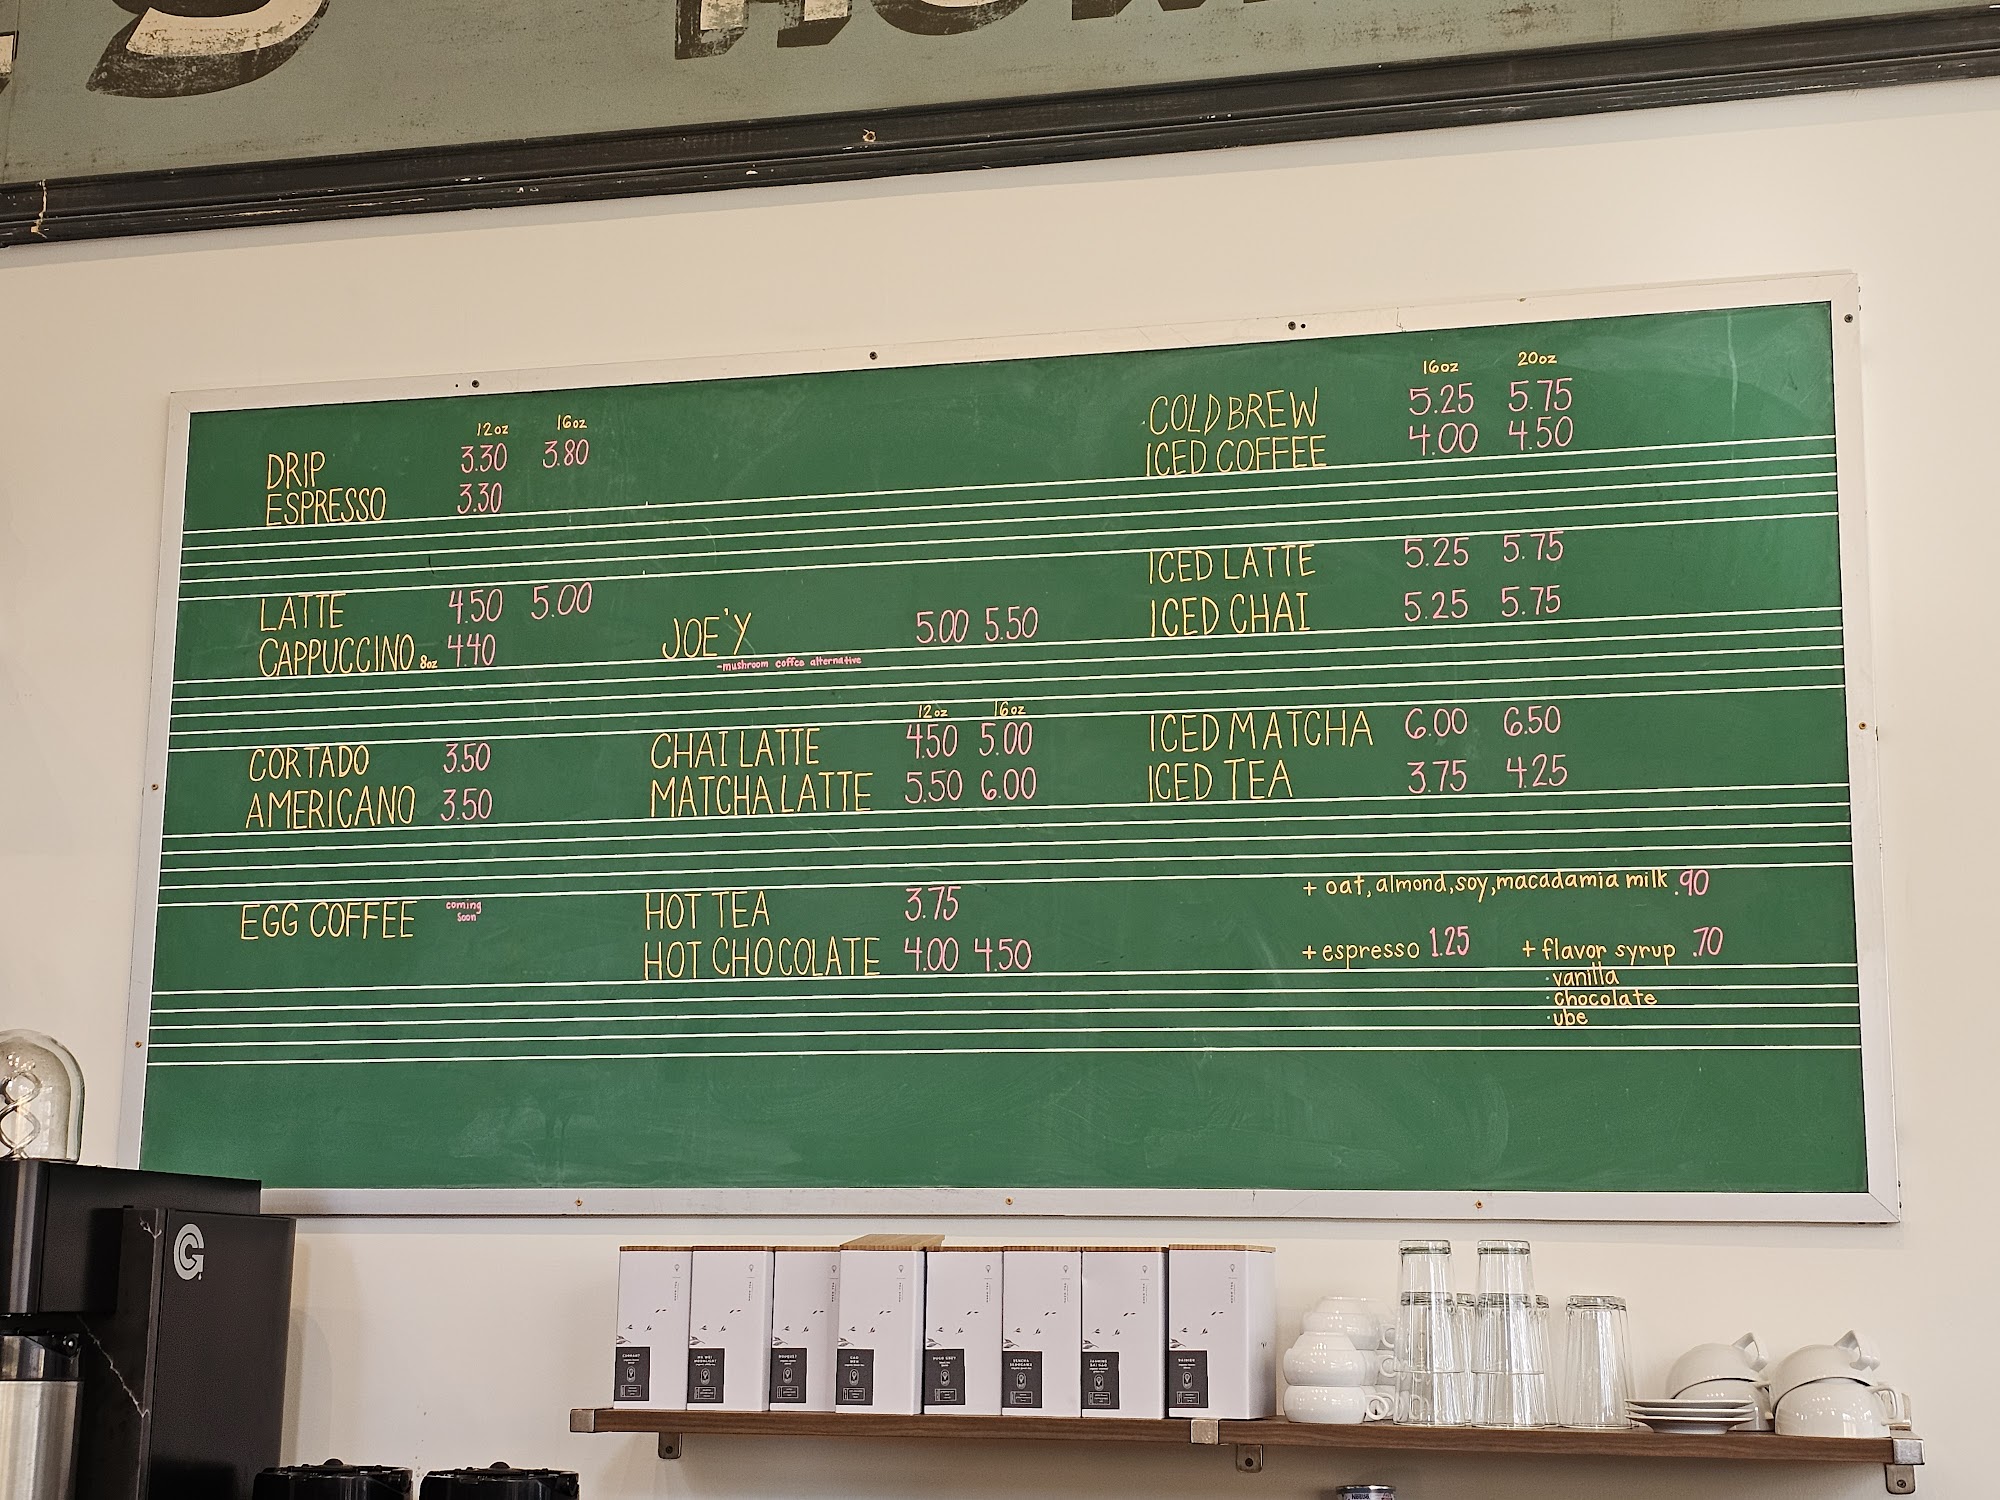 12oz 16oz
DRIP 3.30 3.80
ESPRESSO 3.30
LATTE 4.50 5.00
CAPPUCCINO 8oz 4.40
CORTADO 3.50
AMERICANO 3.50
EGG COFFEE coming
soon
JOE'Y 5.00 5.50
-mushroom coffee alternative
12oz 16oz
CHAI LATTE 4.50 5.00
MATCHA LATTE 5.50 6.00
HOT TEA 3.75
HOT CHOCOLATE 4.00 4.50
16oz 20oz
COLD BREW 5.25 5.75
ICED COFFEE 4.00 4.50
ICED LATTE 5.25 5.75
ICED CHAI 5.25 5.75
ICED MATCHA 6.00 6.50
ICED TEA 3.75 4.25
+ oat, almond, soy, macadamia milk .90
+ espresso 1.25 + flavor syrup .70
· vanilla
· chocolate
· ube